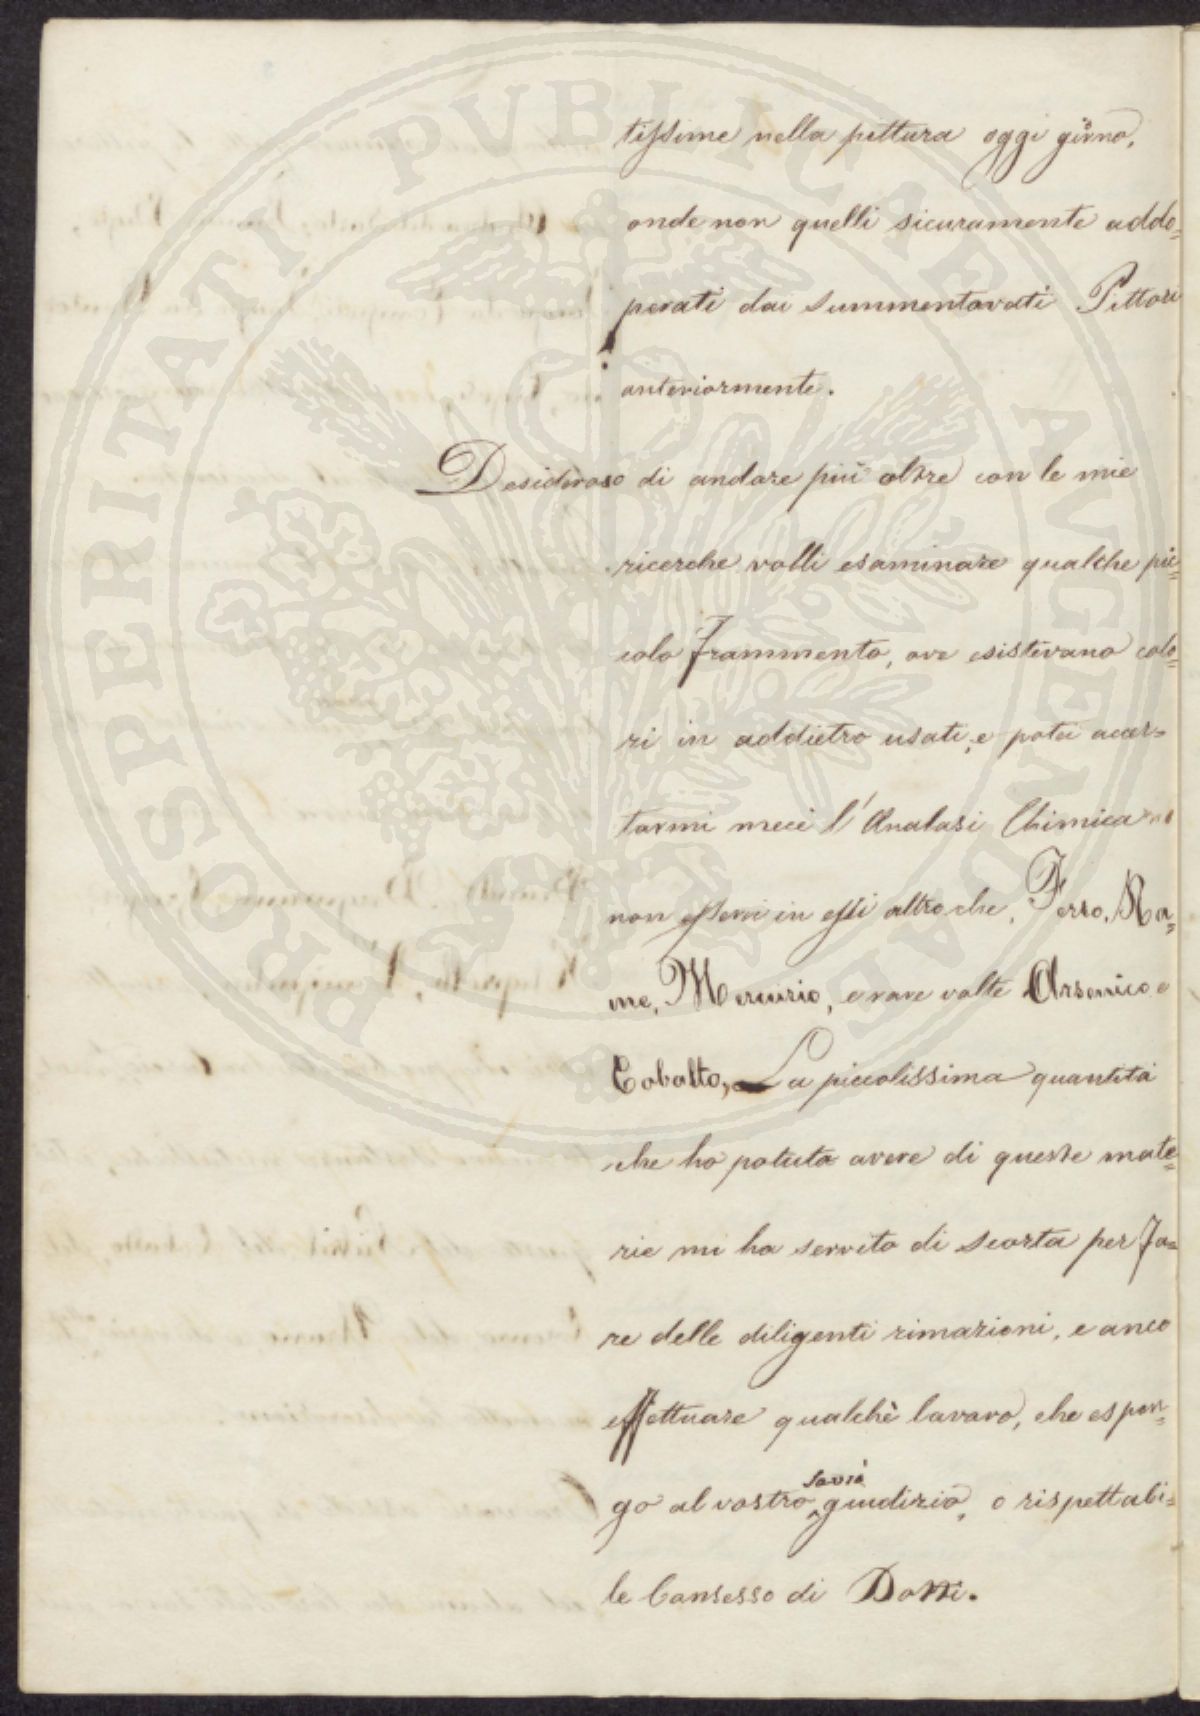 tissime nella pittura oggi giorno,
onde non quelli sicuramente addo=
perati dai summentovati Pittori
anteriormente.
Desideroso di andare più oltre con le mie
ricerche volli esaminare qualche pic=
colo Frammento, ove esistevano colo=
ri in addietro usati, e potei accer=
tarmi mece l'Analasi Chimica
non esservi in essi altro che, Ferro, Ra=
me, Mercurio, e rare volte Arsenico e
Cobolto, La piccolissima quantità
che ho potuto avere di queste mate=
rie mi ha servito di scorta per fa=
re delle diligenti rimazioni, e anco
effettuare qualchè lavoro, che espon=
go al vostro savio giudizio, o rispettabi=
le Consesso di Dotti.
PROSPERITATI PVBLICAE AVGENDAE